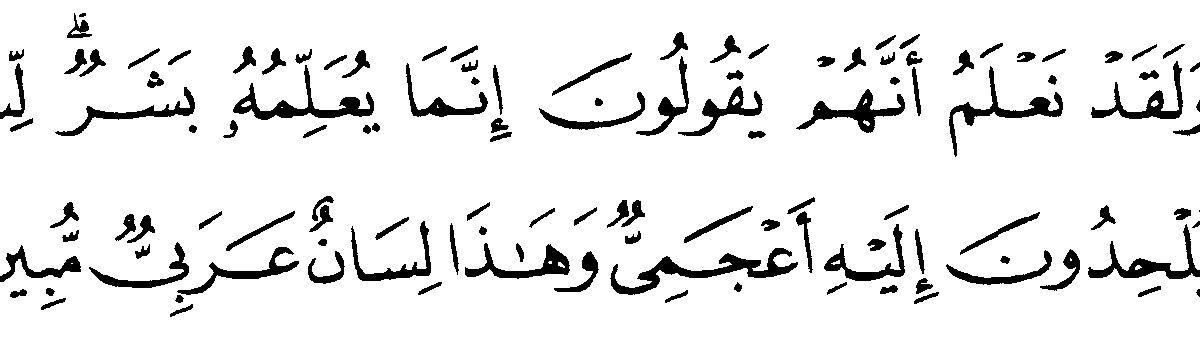 وَلَقَدْ نَعْلَمُ أَنَّهُمْ يَقُولُونَ إِنَّمَا يُعَلِّمُهُۥ بَشَرٌ ۗ لِّسَ
يُلْحِدُونَ إِلَيْهِ أَعْجَمِىٌّ وَهَـٰذَا لِسَانٌ عَرَبِىٌّ مُّبِين